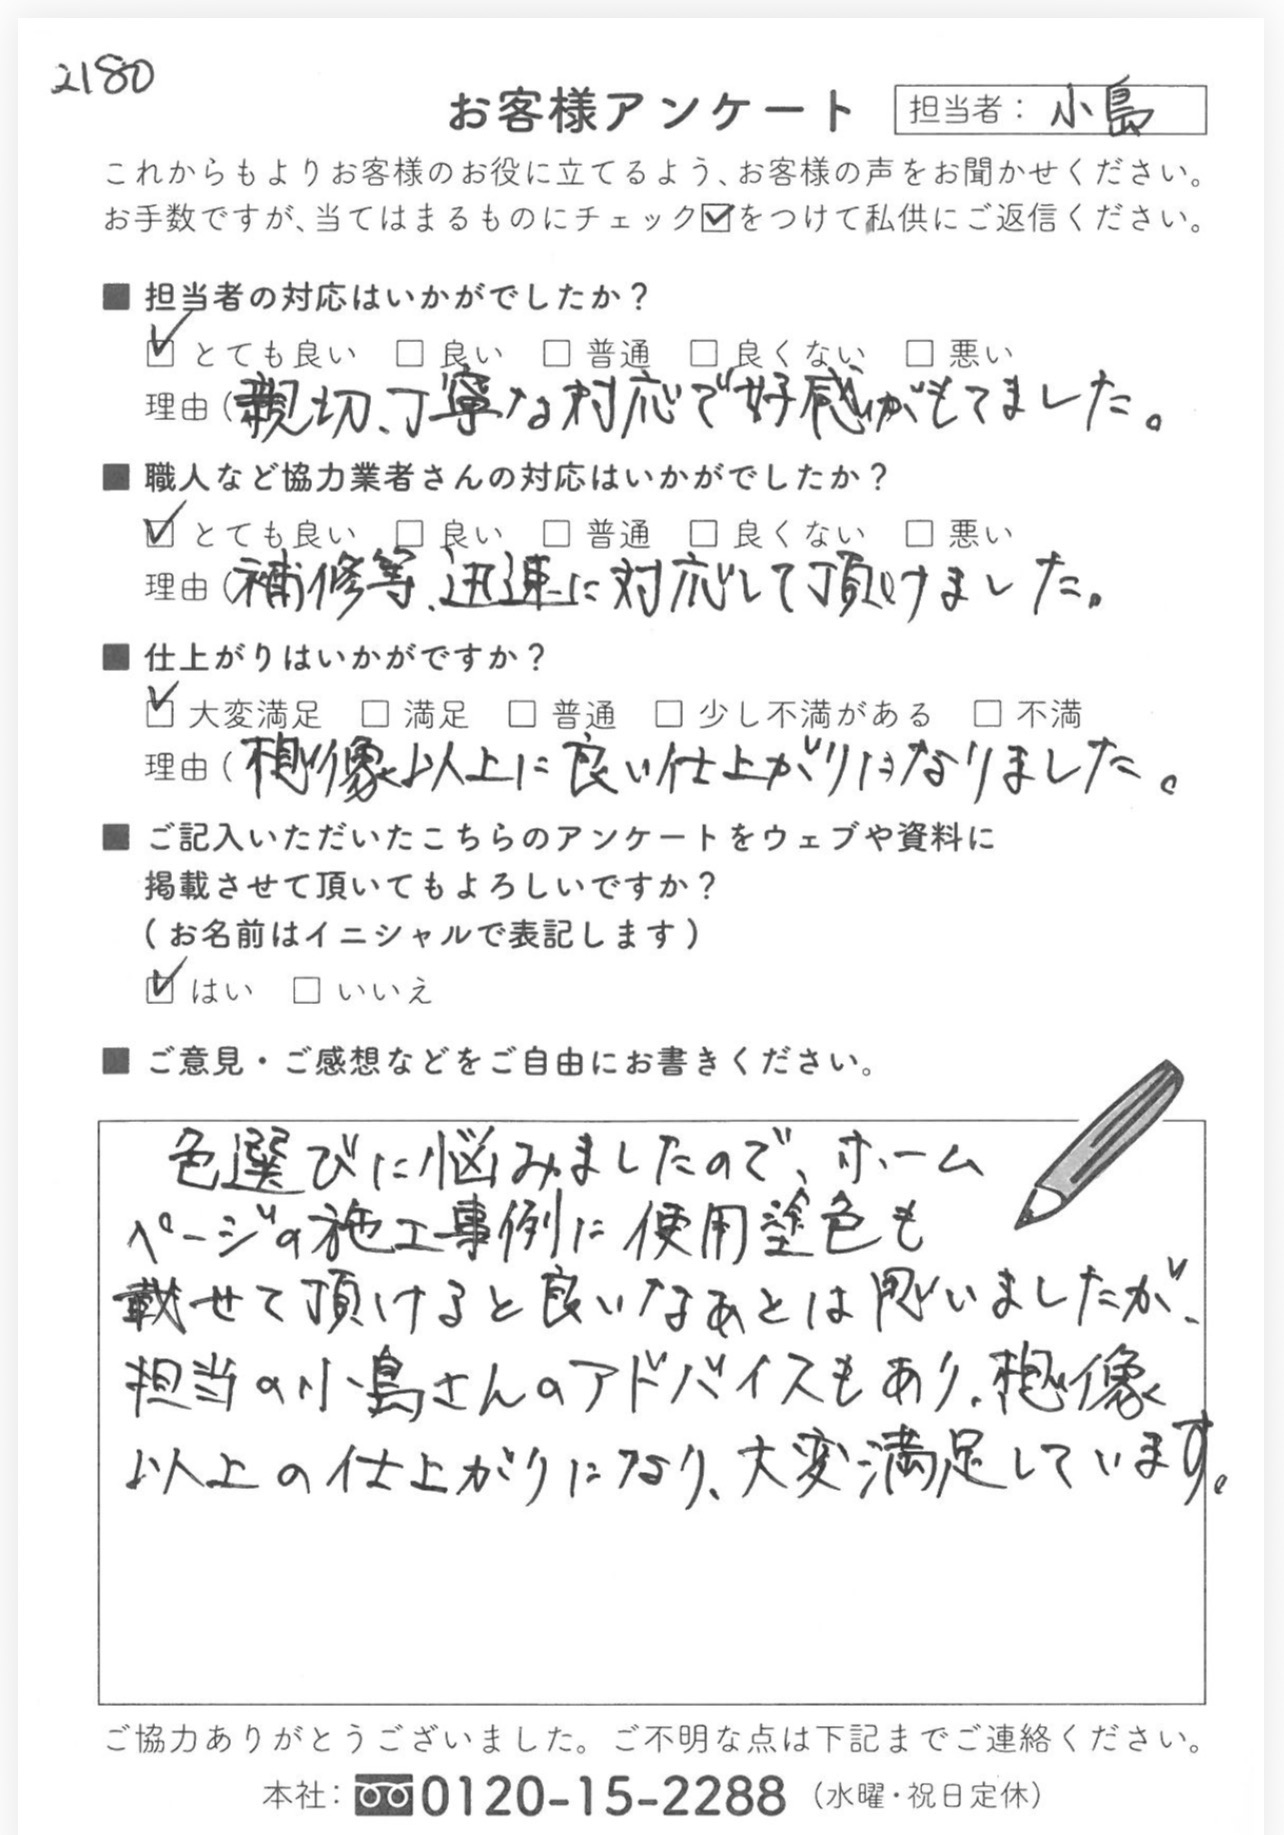 2180
お客様アンケート
担当者: 小島
これからもよりお客様のお役に立てるよう、お客様の声をお聞かせください。
お手数ですが、当てはまるものにチェック☑をつけて私供にご返信ください。
■ 担当者の対応はいかがでしたか?
☑ とても良い □ 良い □ 普通 □ 良くない □ 悪い
理由(親切、丁寧な対応で好感がもてました。
■ 職人など協力業者さんの対応はいかがでしたか?
☑ とても良い □ 良い □ 普通 □ 良くない □ 悪い
理由(補修等、迅速に対応して頂けました。
■ 仕上がりはいかがですか?
☑ 大変満足 □ 満足 □ 普通 □ 少し不満がある □ 不満
理由(想像以上に良い仕上がりになりました。
■ ご記入いただいたこちらのアンケートをウェブや資料に
掲載させて頂いてもよろしいですか?
(お名前はイニシャルで表記します)
☑ はい □ いいえ
■ ご意見・ご感想などをご自由にお書きください。
色選びに悩みましたので、ホーム
ページの施工事例に使用塗色も
載せて頂けると良いなぁとは思いましたが、
担当の小島さんのアドバイスもあり、想像
以上の仕上がりになり、大変満足しています。
ご協力ありがとうございました。ご不明な点は下記までご連絡ください。
本社: 0120-15-2288 (水曜・祝日定休)